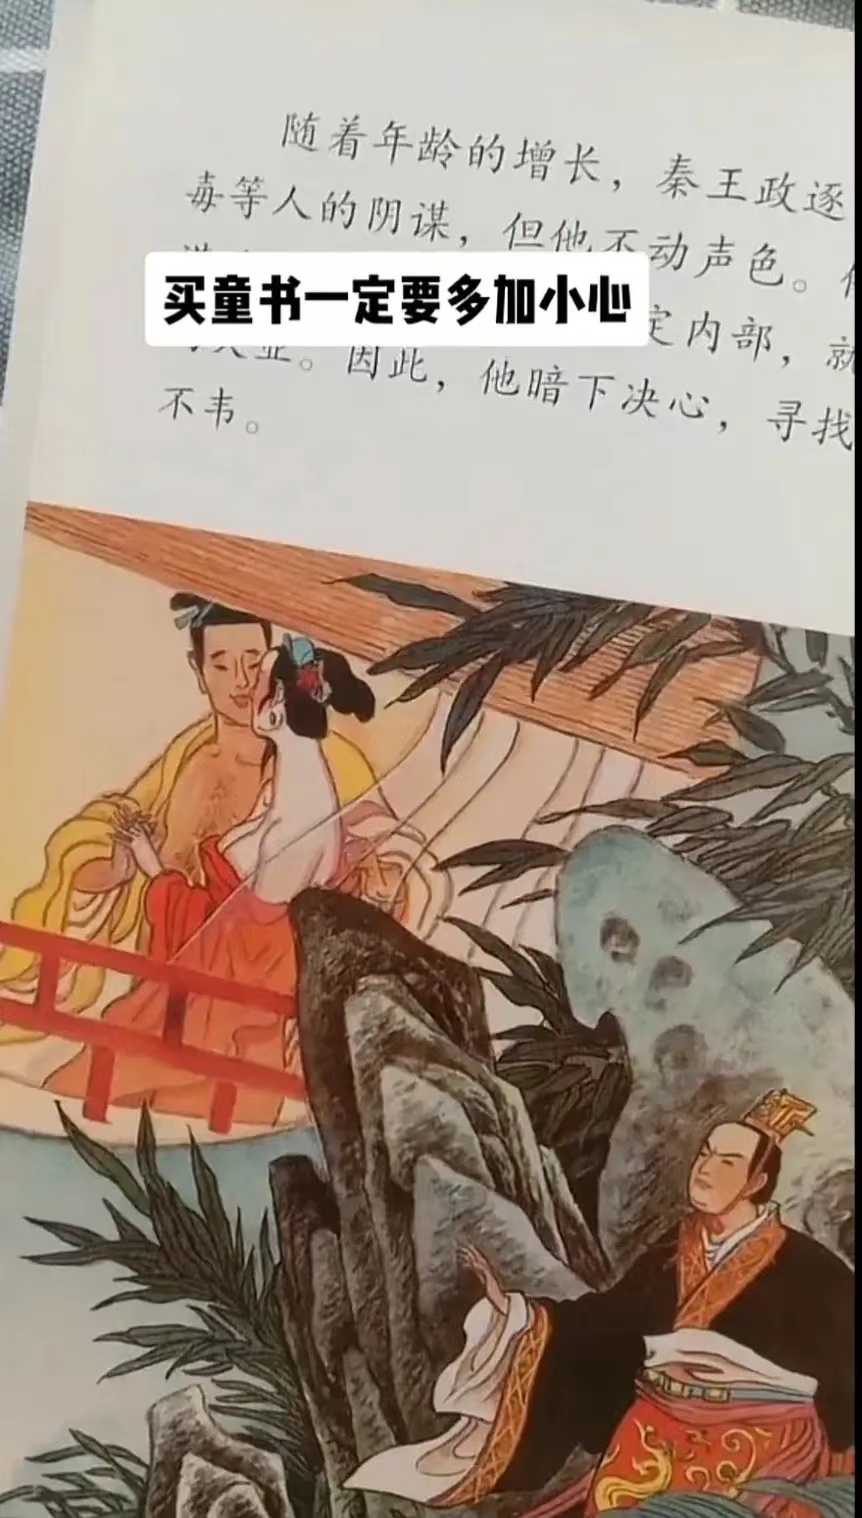 随着年龄的增长，秦王政逐
毐等人的阴谋，但他不动声色。
买童书一定要多加小心
定内部，就
业。因此，他暗下决心，寻找
不韦。